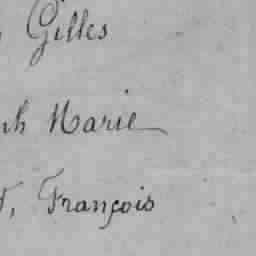 Gilles
Marie
François